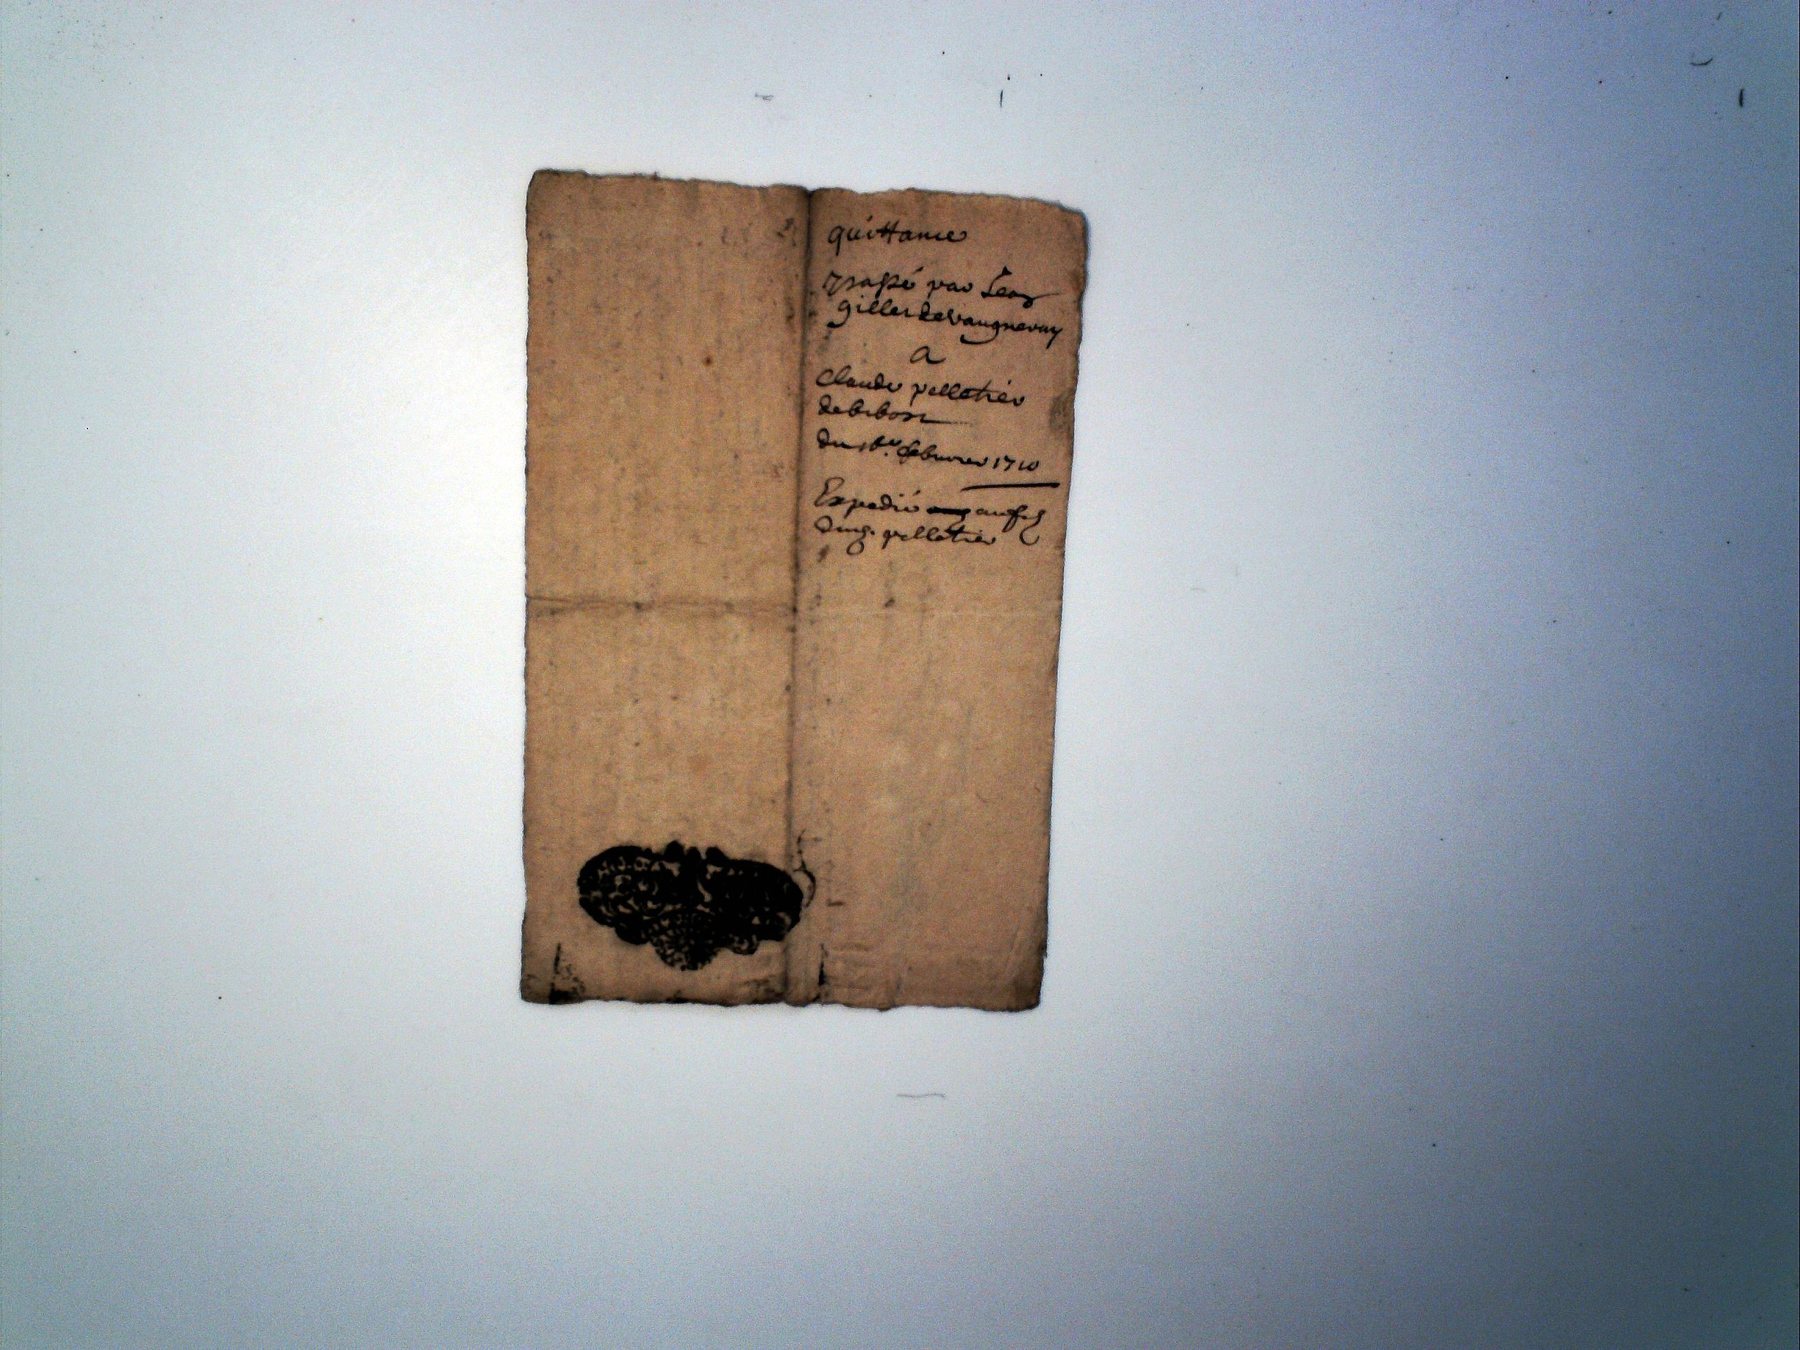 quittance
passé par Jean
gilles de vaugneray
a
Claude pelletier
de bibost
du 16e. febvrier 1710
Expedié au sr
pelletier